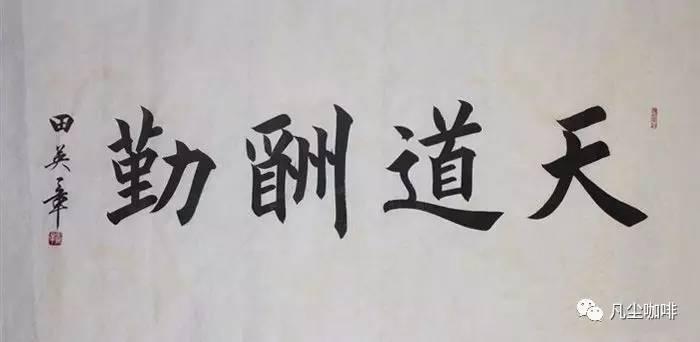 天道酬勤
田英章
凡尘咖啡